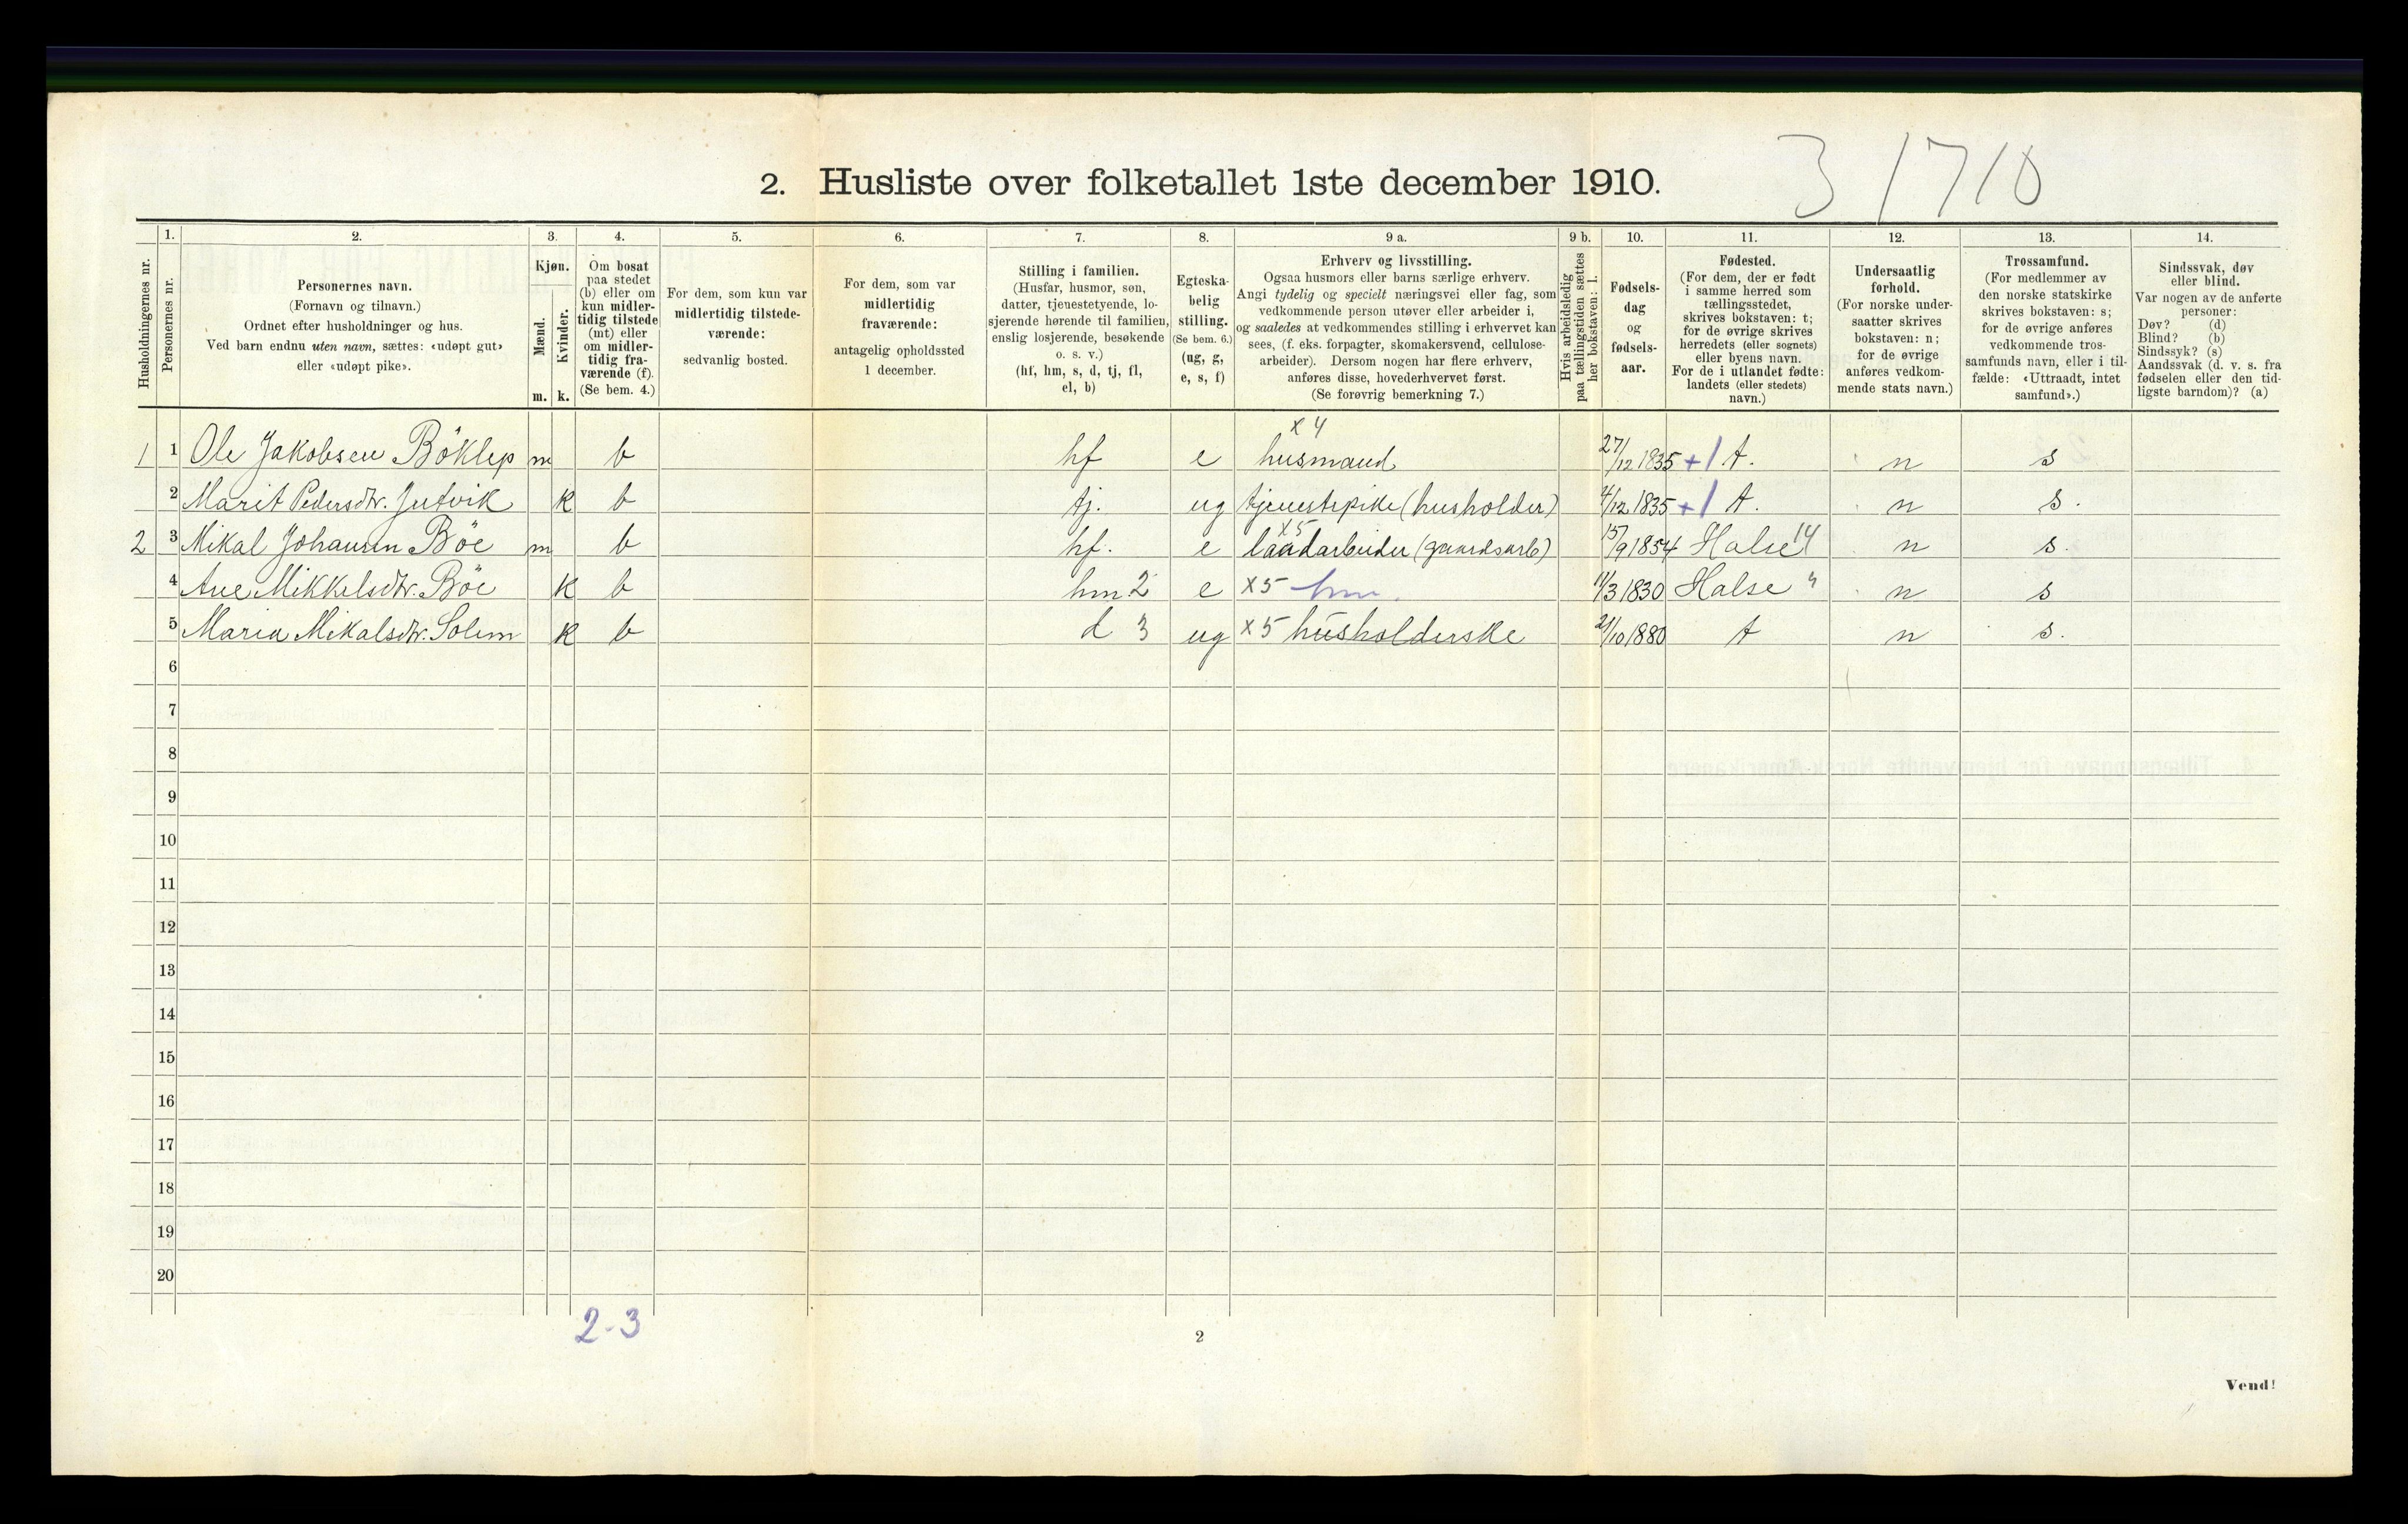 3 1710
2. Husliste over folketallet 1ste december 1910.
Husholdningernes nr.
1. Personernes nr.
2. Personernes navn.
(Fornavn og tilnavn.)
Ordnet efter husholdninger og hus.
Ved barn endnu uten navn, sættes: «udøpt gut»
eller «udøpt pike».
3. Kjøn.
Mænd. m.
Kvinder. k.
4. Om bosat
paa stedet
(b) eller om
kun midler-
tidig tilstede
(mt) eller
om midler-
tidig fra-
værende (f).
(Se bem. 4.)
5. For dem, som kun var
midlertidig tilstede-
værende:
sedvanlig bosted.
6. For dem, som var
midlertidig
fraværende:
antagelig opholdssted
1 december.
7. Stilling i familien.
(Husfar, husmor, søn,
datter, tjenestetyende, lo-
sjerende hørende til familien,
enslig losjerende, besøkende
o. s. v.)
(hf, hm, s, d, tj, fl,
el, b)
8. Egteska-
belig
stilling.
(Se bem. 6.)
(ug, g,
e, s, f)
9 a. Erhverv og livsstilling.
Ogsaa husmors eller barns særlige erhverv.
Angi tydelig og specielt næringsvei eller fag, som
vedkommende person utøver eller arbeider i,
og saaledes at vedkommendes stilling i erhvervet kan
sees, (f. eks. forpagter, skomakersvend, cellulose-
arbeider). Dersom nogen har flere erhverv,
anføres disse, hovederhvervet først.
(Se forøvrig bemerkning 7.)
9 b. Hvis arbeidsledig
paa tællingstiden sættes
her bokstaven: l.
10. Fødsels-
dag
og
fødsels-
aar.
11. Fødested.
(For dem, der er født
i samme herred som
tællingsstedet,
skrives bokstaven: t;
for de øvrige skrives
herredets (eller sognets)
eller byens navn.
For de i utlandet fødte:
landets (eller stedets)
navn.)
12. Undersaatlig
forhold.
(For norske under-
saatter skrives
bokstaven: n;
for de øvrige
anføres vedkom-
mende stats navn.)
13. Trossamfund.
(For medlemmer av
den norske statskirke
skrives bokstaven: s;
for de øvrige anføres
vedkommende tros-
samfunds navn, eller i til-
fælde: «Uttraadt, intet
samfund».)
14. Sindssvak, døv
eller blind.
Var nogen av de anførte
personer:
Døv? (d)
Blind? (b)
Sindssyk? (s)
Aandssvak (d. v. s. fra
fødselen eller den tid-
ligste barndom)? (a)
x 4
1 1 Ole Jakobsen Böklep m b hf e husmand 27/12 1835 +1 t. n s
2 Marit Pedersdtr. Jutvik k b tj. ug tjenestepike (husholder) 4/12 1835 +1 t. n s.
x5
2 3 Mikal Johansen Böe m b hf. e landarbeider (gaardsarb) 15/9 1854 Halse 14 n s.
4 Ane Mikkelsdtr. Böe k b hm 2 e x5 hm. 11/3 1830 Halse " n s
5 Maria Mikalsdtr. Solem k b d 3 ug x5 husholderske 21/10 1880 t n s.
6
7
8
9
10
11
12
13
14
15
16
17
18
19
20
2-3
2
Vend!